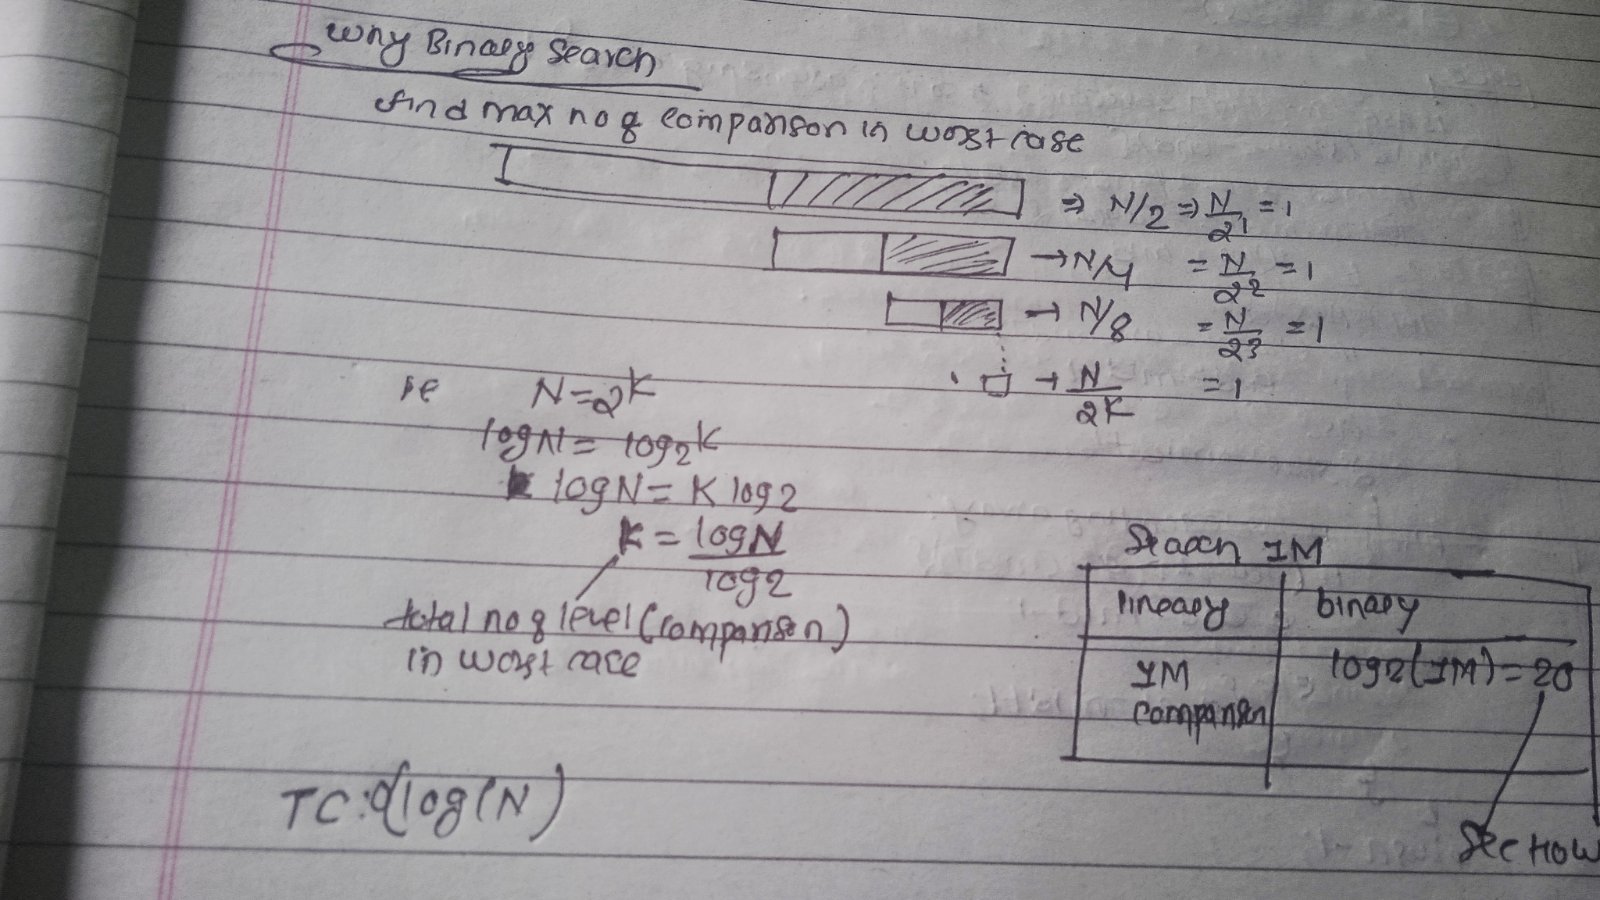 Why Binary Search
find max no of comparison in worst case
⇒ N/2 ⇒ N/2^1 = 1
→ N/4 = N/2^2 = 1
→ N/8 = N/2^3 = 1
→ N/2^K = 1
ie N=2^K
logN = log2^K
logN = K log2
K = logN/log2
total no of level (comparison)
in worst case
Search 1M
lineary | binary
1M | log2(1M) = 20
comparison
See How
TC: O(log(N)